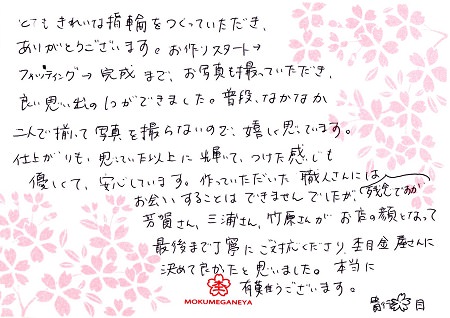 とてもきれいな指輪をつくっていただき、
ありがとうございます。お作りスタート→
フィッティング→完成まで、お写真も撮っていただき、
良い思い出の1つができました。普段、なかなか
二人で揃って写真を撮らないので、嬉しく思っています。
仕上がりも、思っていた以上に輝いて、つけた感じも
優しくて、安心しています。作っていただいた職人さんには
お会いすることはできませんでしたが、残念ですが
芳賀さん、三浦さん、竹原さんがお店の顔となって
最後まで丁寧にご対応くださり、杢目金屋さんに
決めて良かったと思いました。本当に
有難うございます。
MOKUMEGANEYA